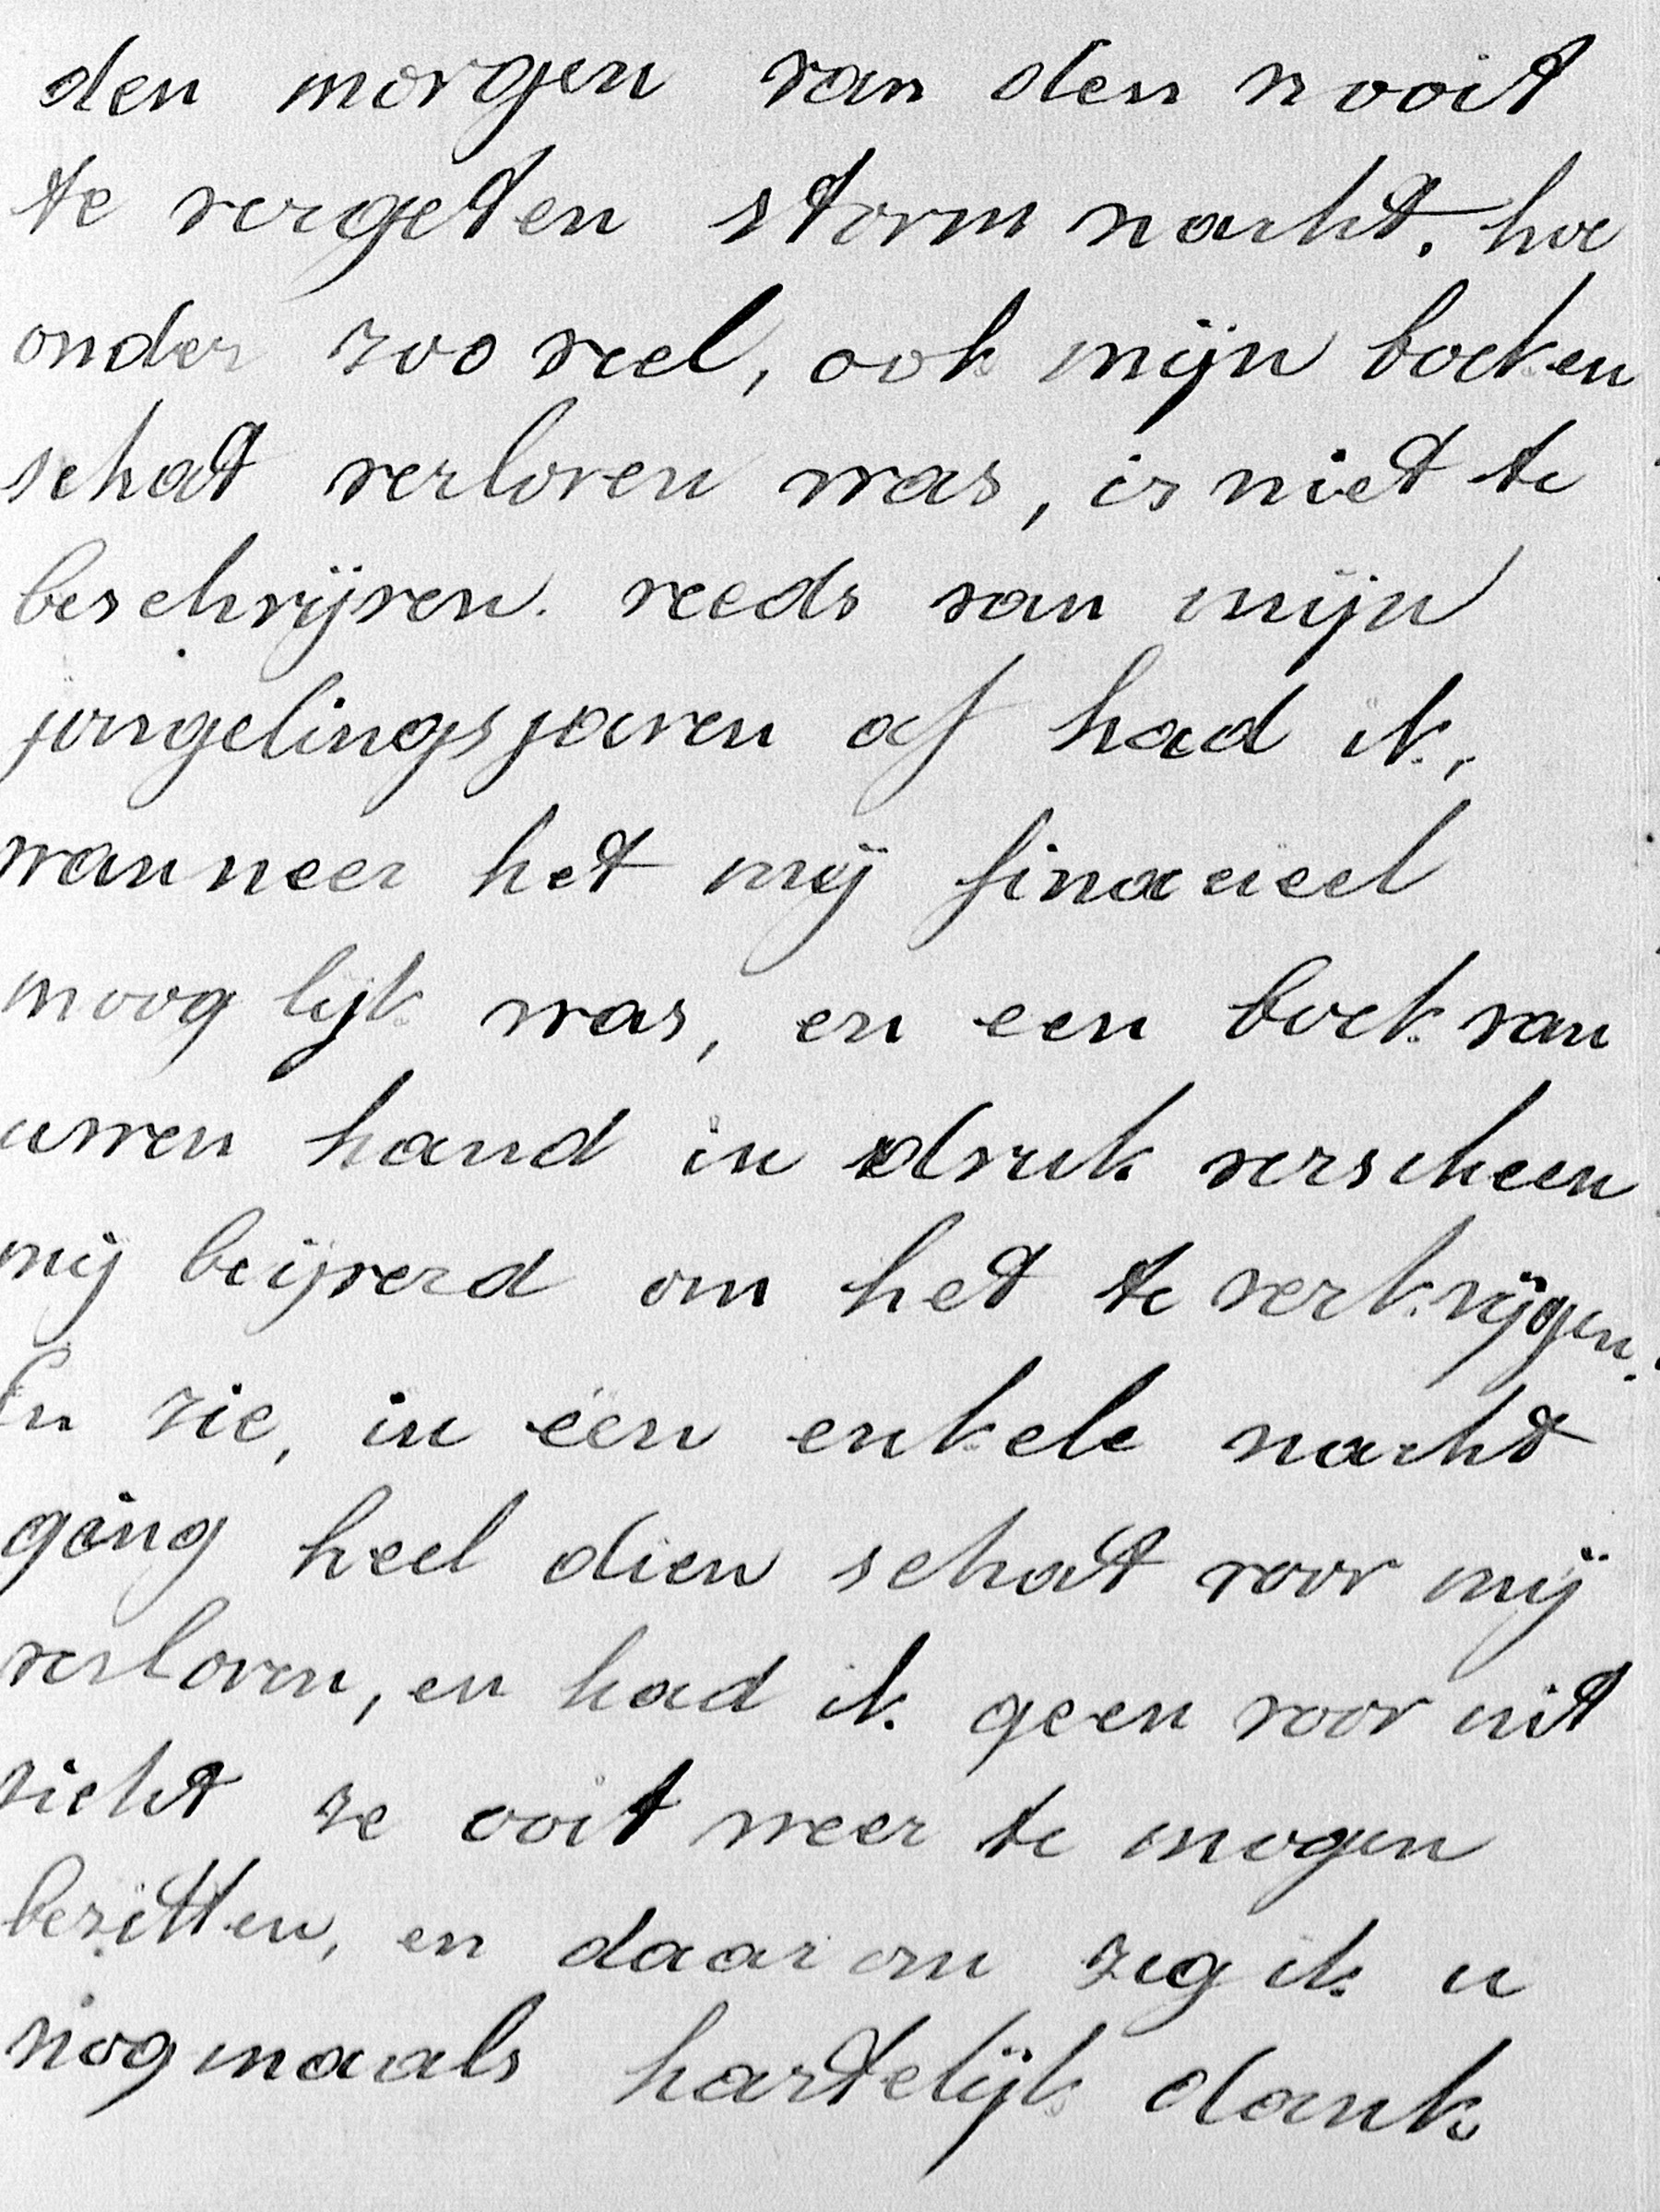 den morgen van den nooit
te vergeten storm nacht. hoe
onder zoo veel, ook mijn boeken
schat verloren was, is niet te
beschrijven. reeds van mijn
jongelingsjaren af had ik,
wanneer het mij finacieel
mooglijk was, en een boek van
uwen hand in druk verscheen
mij beijverd om het te verkrijgen.
En zie, in één enkele nacht
ging heel dien schat voor mij
verloren, en had ik geen voor uit
zicht ze ooit weer te mogen
bezitten, en daarom zeg ik u
nogmaals hartelijk dank